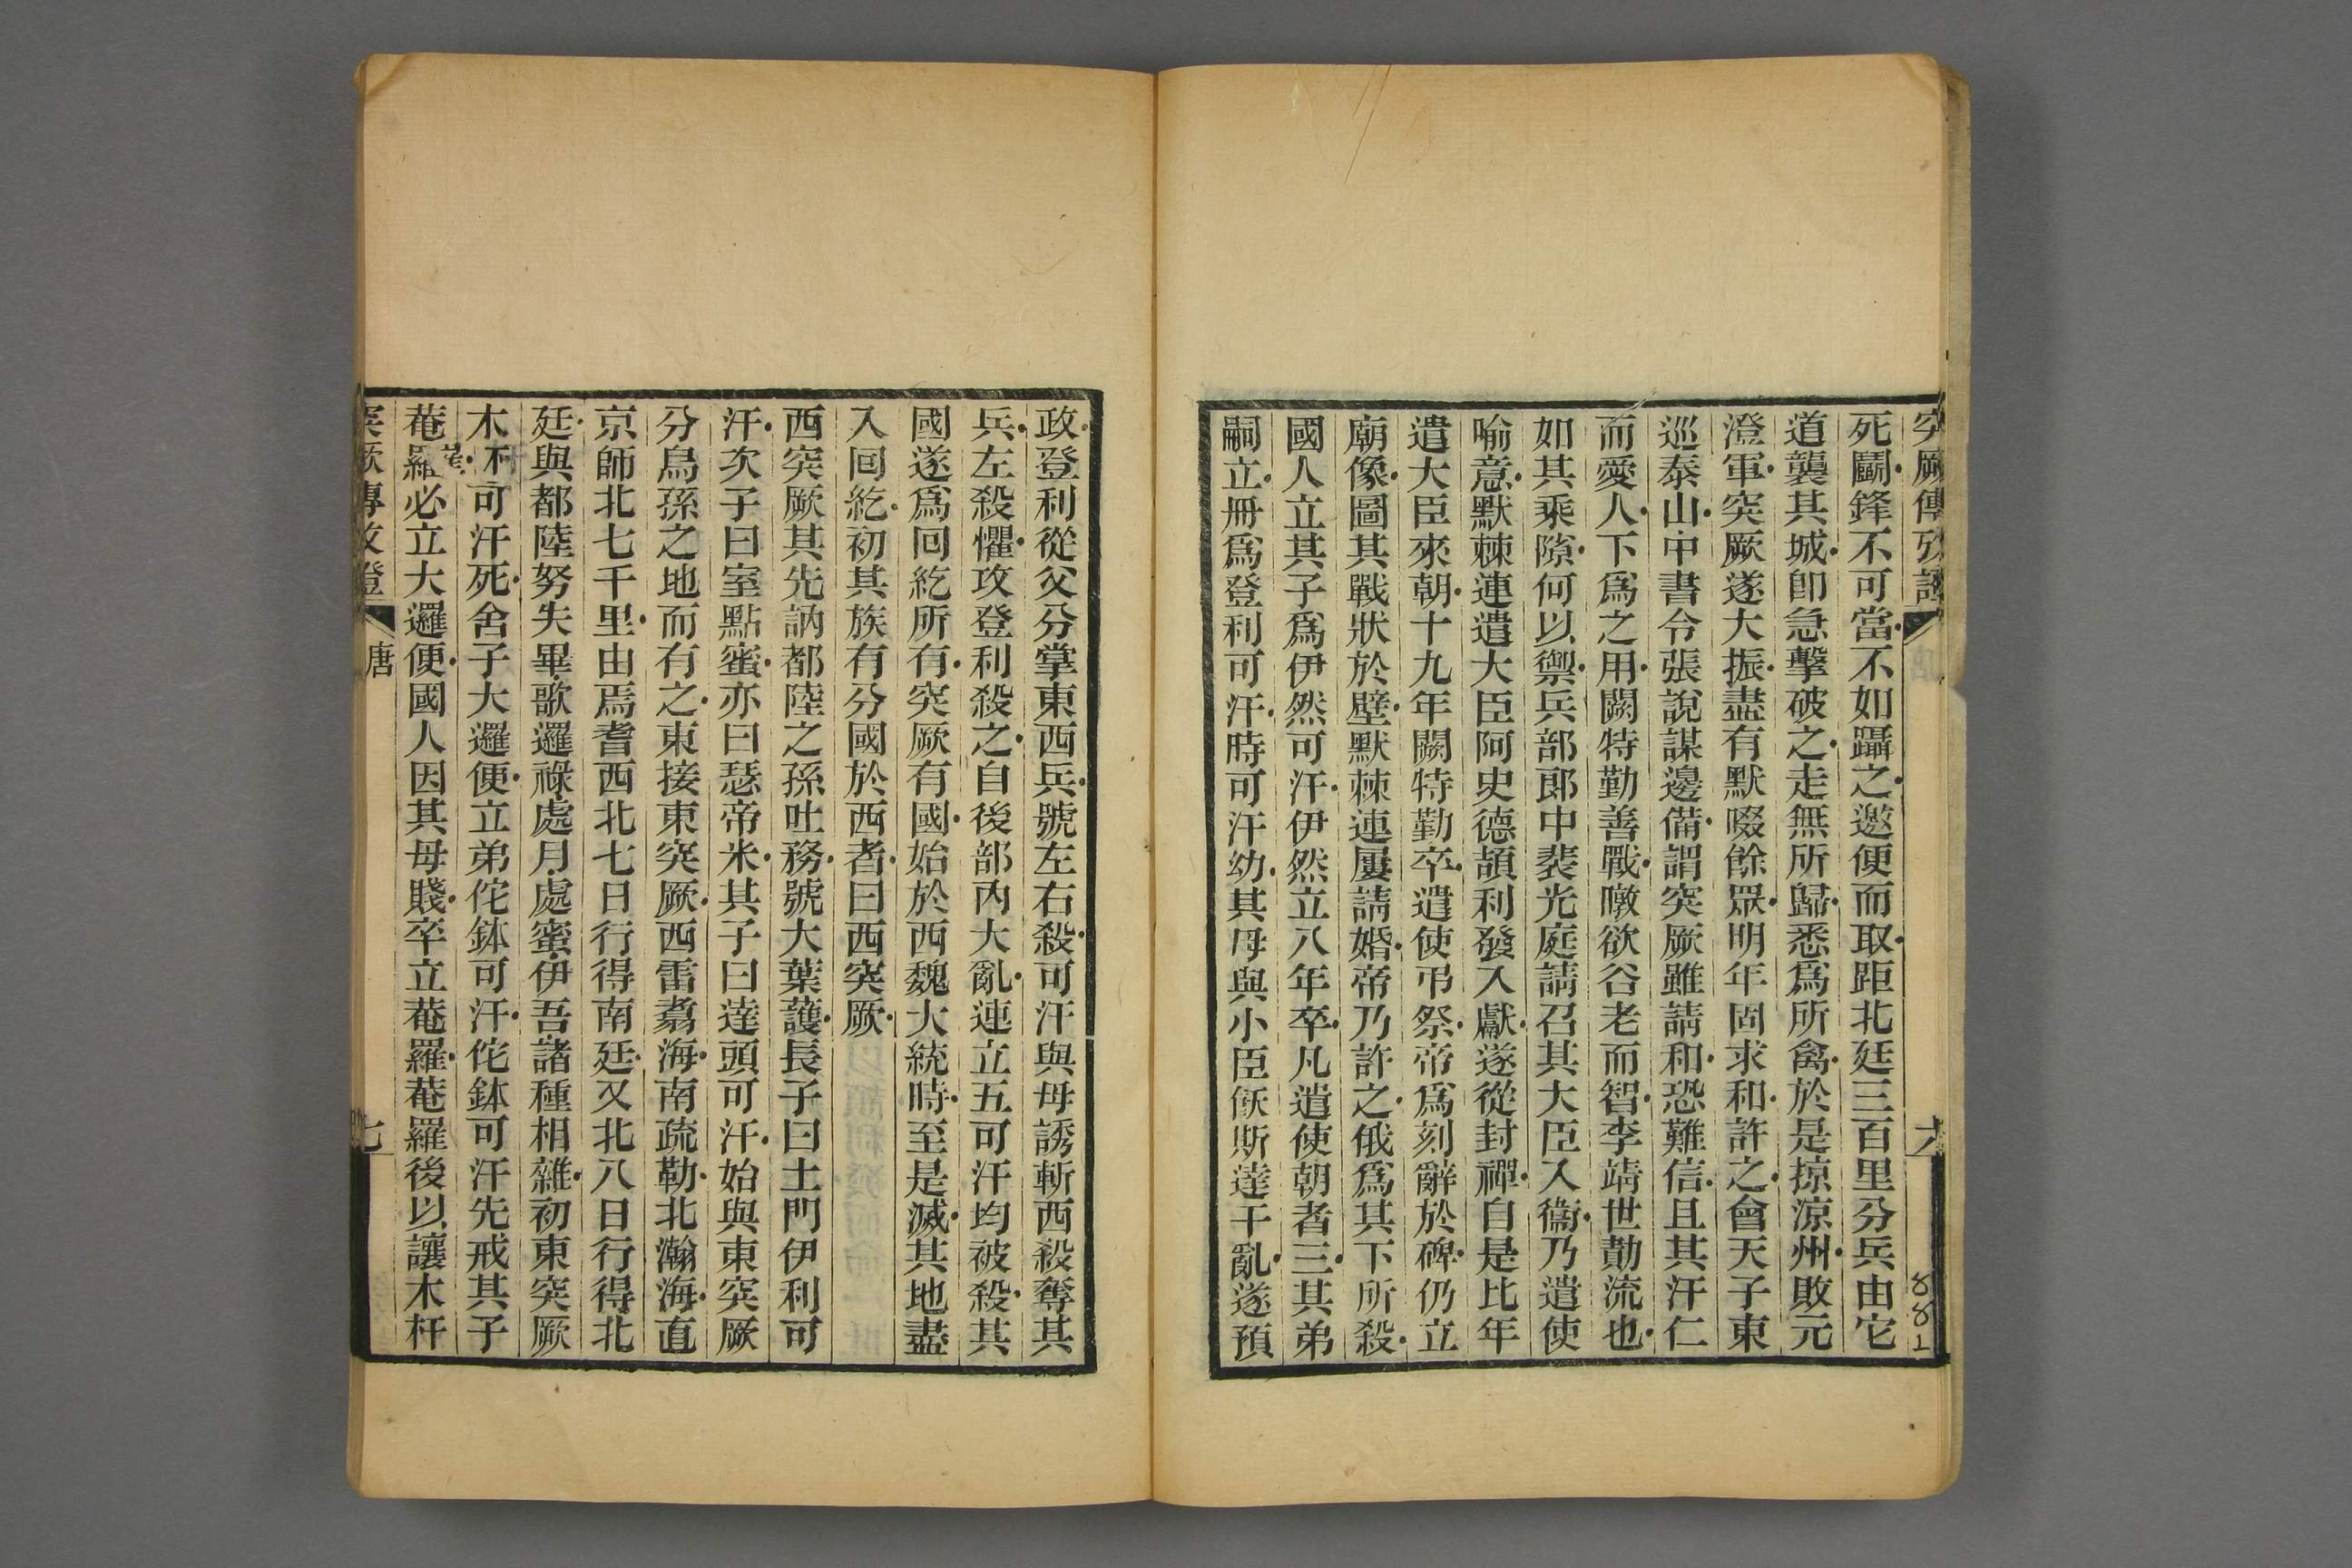 突厥傳攷證
六
死鬭鋒不可當不如躡之邀便而取距北廷三百里分兵由它
道襲其城卽急擊破之走無所歸悉爲所禽於是掠涼州敗元
澄軍突厥遂大振盡有默啜餘眾明年固求和許之會天子東
巡泰山中書令張說謀邊備謂突厥雖請和恐難信且其汗仁
而愛人下爲之用闕特勤善戰暾欲谷老而智李靖世勣流也
如其乘隙何以禦兵部郎中裴光庭請召其大臣入衞乃遣使
喻意默棘連遣大臣阿史德頡利發入獻遂從封禪自是比年
遣大臣來朝十九年闕特勤卒遣使弔祭帝爲刻辭於碑仍立
廟像圖其戰狀於壁默棘連屢請婚帝乃許之俄爲其下所殺
國人立其子爲伊然可汗伊然立八年卒凡遣使朝者三其弟
嗣立冊爲登利可汗時可汗幼其母與小臣飫斯達干亂遂預
政登利從父分掌東西兵號左右殺可汗與母誘斬西殺奪其
兵左殺懼攻登利殺之自後部內大亂連立五可汗均被殺其
國遂爲回紇所有突厥有國始於西魏大統時至是滅其地盡
入回紇初其族有分國於西者曰西突厥
西突厥其先訥都陸之孫吐務號大葉護長子曰土門伊利可
汗次子曰室點蜜亦曰瑟帝米其子曰達頭可汗始與東突厥
分烏孫之地而有之東接東突厥西雷翥海南疏勒北瀚海直
京師北七千里由焉耆西北七日行得南廷又北八日行得北
廷與都陸努失畢歌邏祿處月處蜜伊吾諸種相雜初東突厥
木杆可汗死舍子大邏便立弟佗鉢可汗佗鉢可汗先戒其子
菴羅必立大邏便國人因其母賤卒立菴羅菴羅後以讓木杆
突厥傳攷證
唐
七